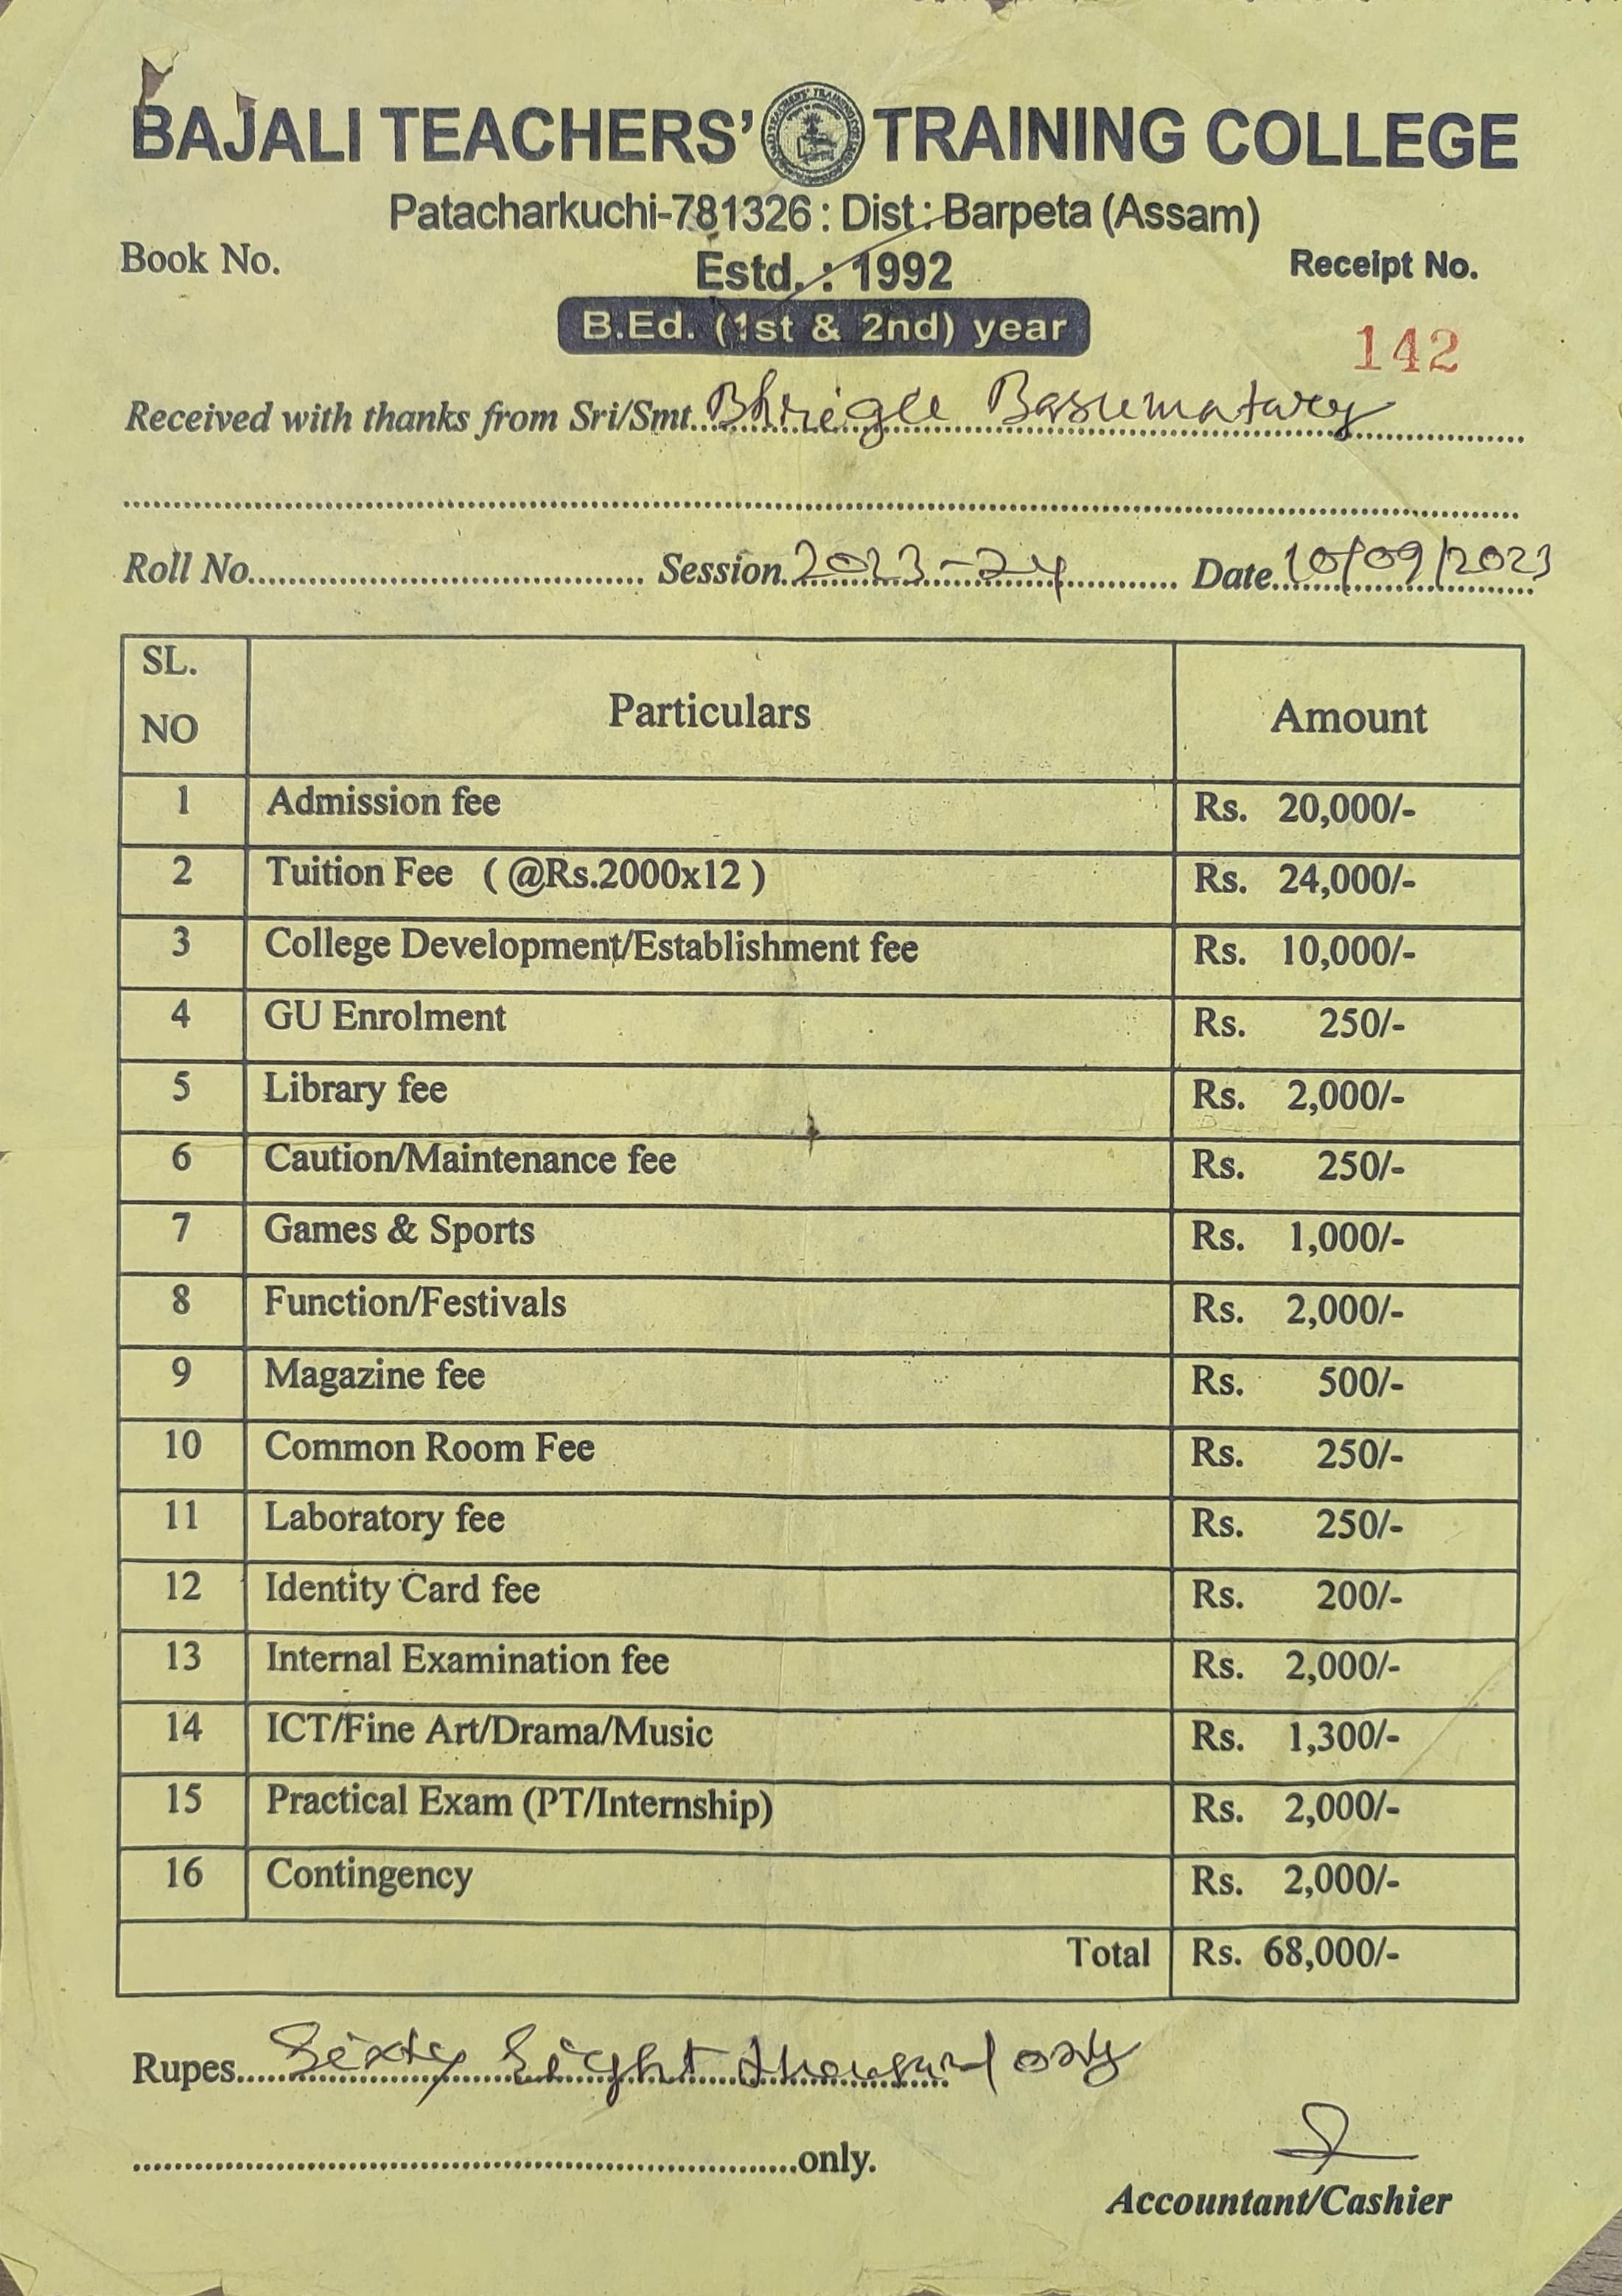 BAJALI TEACHERS' TRAINING COLLEGE
Patacharkuchi-781326 : Dist : Barpeta (Assam)
Book No. Estd. : 1992 Receipt No.
B.Ed. (1st & 2nd) year
142
Received with thanks from Sri/Smt. Basumatary
Roll No. Session. 2023-24 Date. 10/09/2023
SL. NO Particulars Amount
1 Admission fee Rs. 20,000/-
2 Tuition Fee ( @Rs.2000x12 ) Rs. 24,000/-
3 College Development/Establishment fee Rs. 10,000/-
4 GU Enrolment Rs. 250/-
5 Library fee Rs. 2,000/-
6 Caution/Maintenance fee Rs. 250/-
7 Games & Sports Rs. 1,000/-
8 Function/Festivals Rs. 2,000/-
9 Magazine fee Rs. 500/-
10 Common Room Fee Rs. 250/-
11 Laboratory fee Rs. 250/-
12 Identity Card fee Rs. 200/-
13 Internal Examination fee Rs. 2,000/-
14 ICT/Fine Art/Drama/Music Rs. 1,300/-
15 Practical Exam (PT/Internship) Rs. 2,000/-
16 Contingency Rs. 2,000/-
Total Rs. 68,000/-
Rupes. Sixty Eight thousand only
only.
Accountant/Cashier